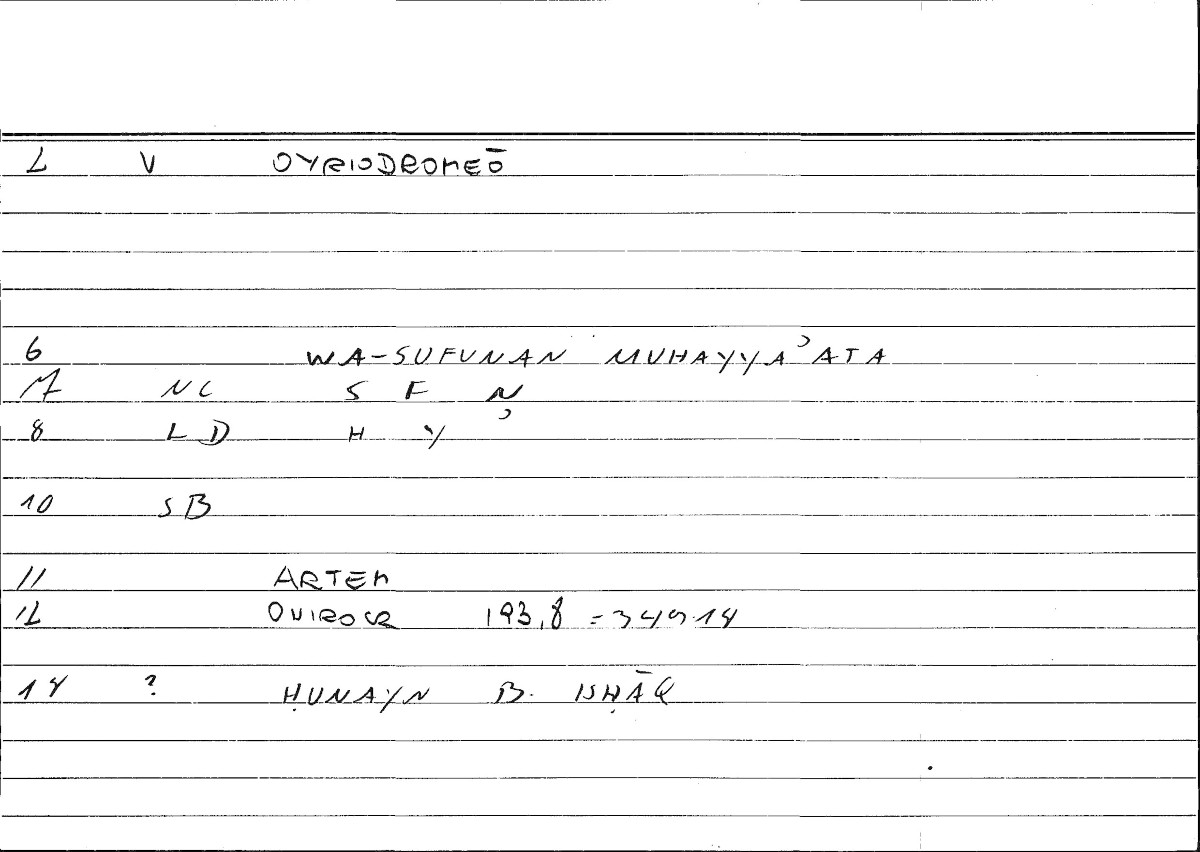 2 V OYRIODROMEŌ
6 WA-SUFUNAN MUHAYYAʾATA
7 NC S F N
8 LD H Y ʾ
10 SB
11 ARTEM
12 ONIROCR 193,8 = 349.14
14 ? ḤUNAYN B. ISḤĀQ